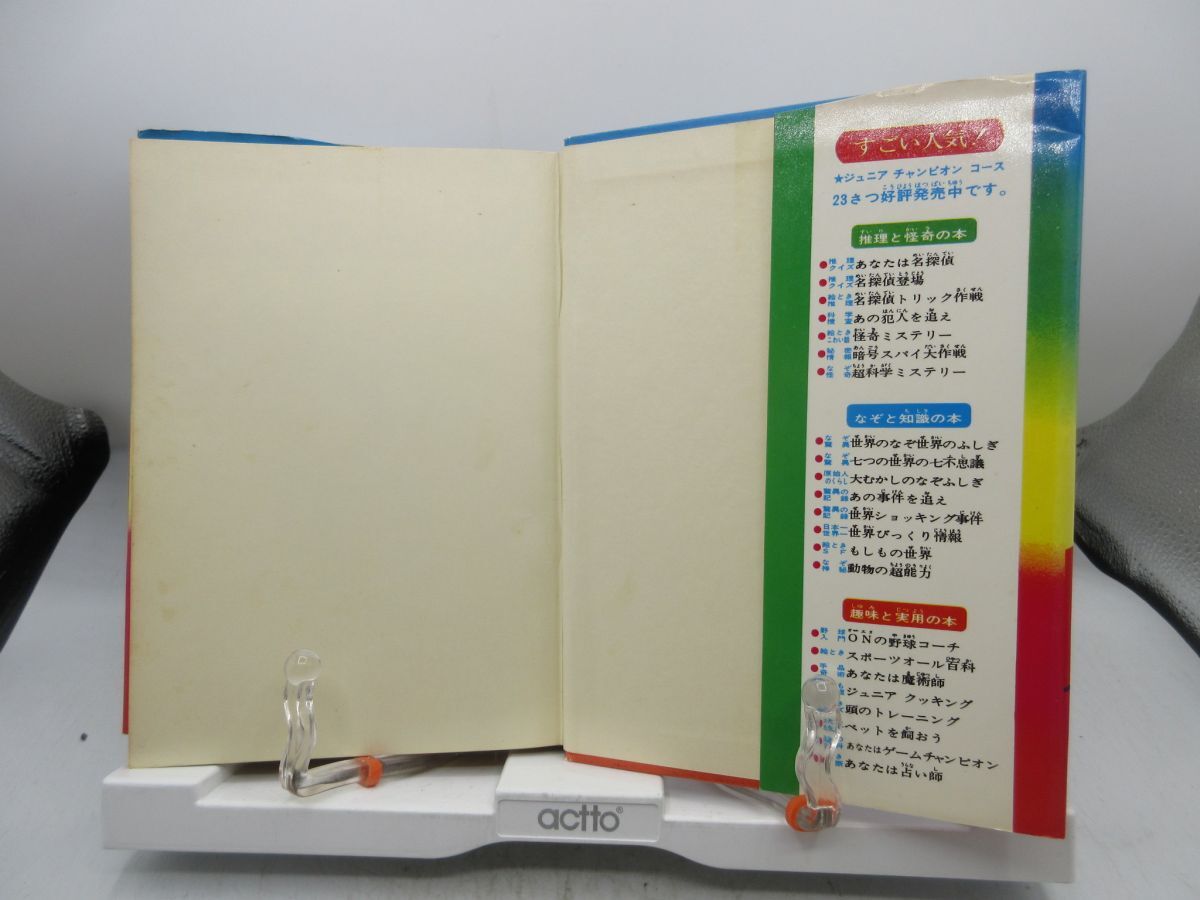 すごい人気！
★ジュニア チャンピオン コース
23さつ好評発売中です。
推理と怪奇の本
●推理クイズ あなたは名探偵
●推理クイズ 名探偵登場
●絵とき推理 名探偵トリック作戦
●科学捜査 あの犯人を追え
●絵ときこわい話 怪奇ミステリー
●秘密情報 暗号スパイ大作戦
●なぞ怪奇 超科学ミステリー
なぞと知識の本
●なぞ驚異 世界のなぞ世界のふしぎ
●なぞ驚異 七つの世界の七不思議
●原始人のくらし 大むかしのなぞふしぎ
●驚異の記録 あの事件を追え
●驚異の記録 世界ショッキング事件
●日本一世界一 世界びっくり情報
●絵ときSF もしもの世界
●なぞ神秘 動物の超能力
趣味と実用の本
●野球入門 ONの野球コーチ
●絵とき スポーツオール百科
●手品奇術 あなたは魔術師
ジュニア クッキング
頭のトレーニング
ペットを飼おう
あなたはゲームチャンピオン
あなたは占い師
actto®